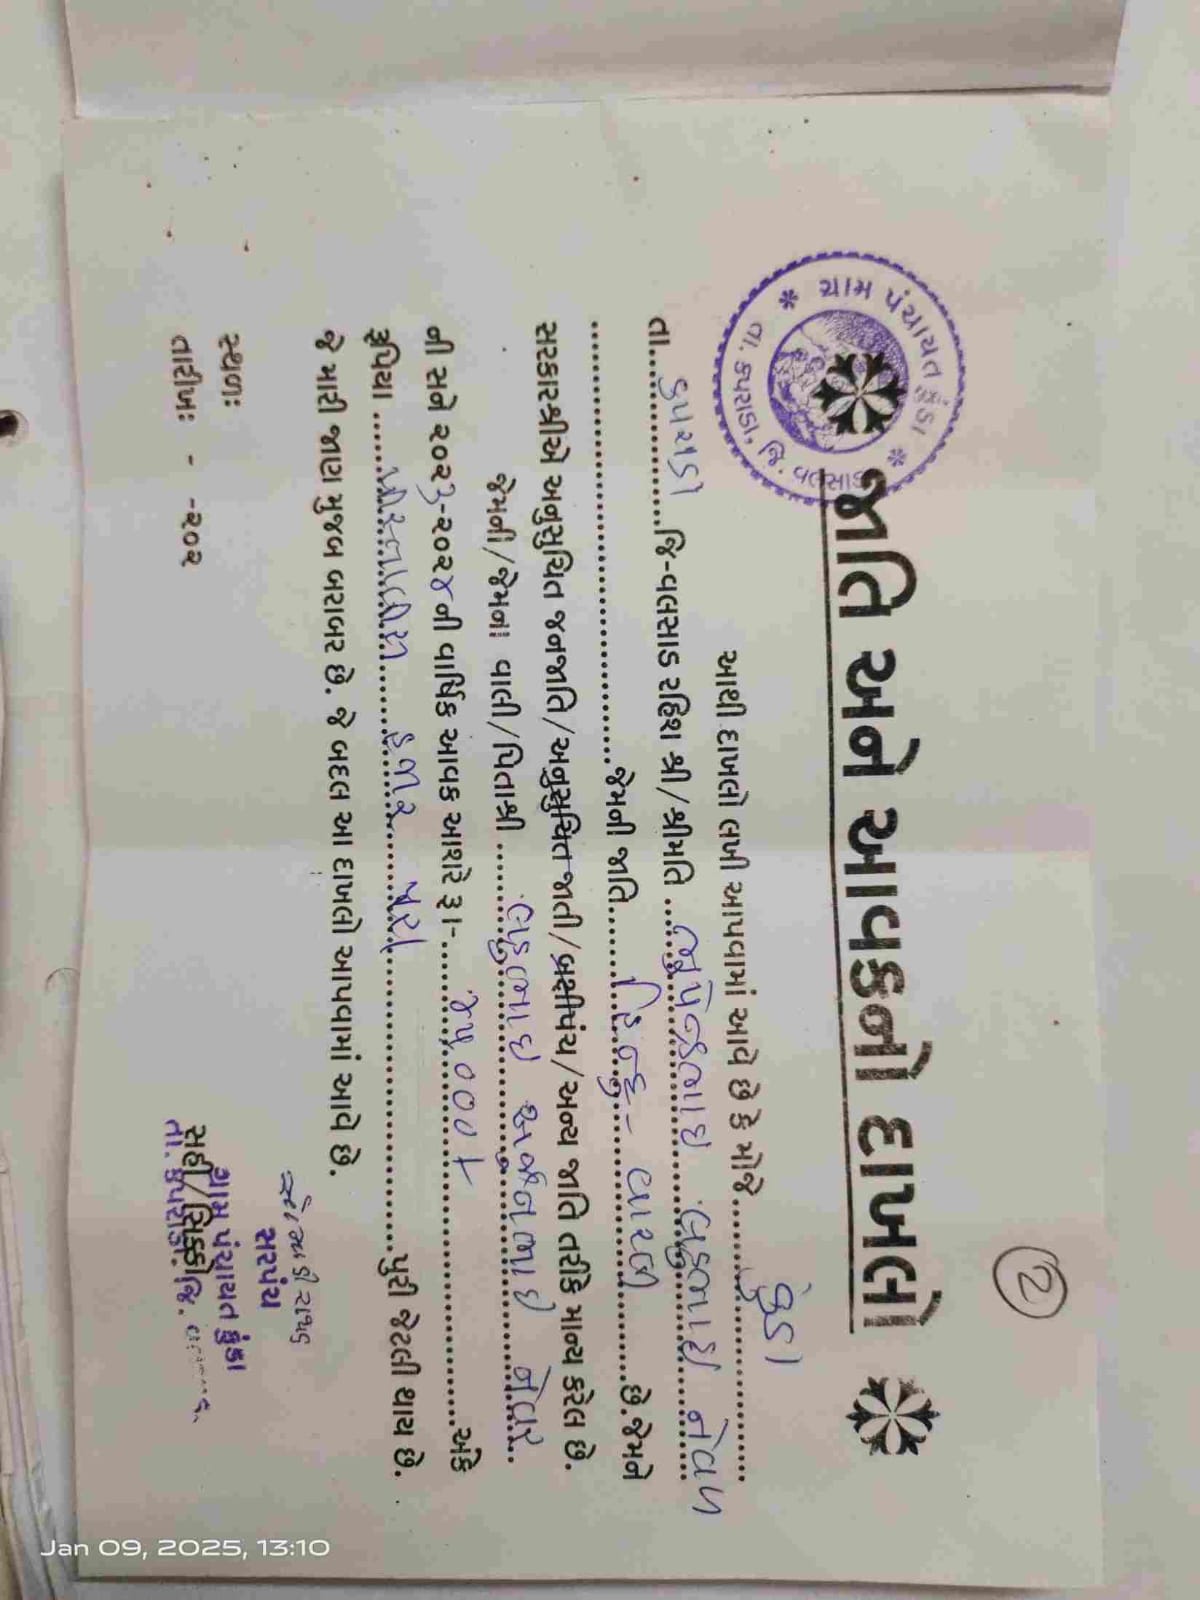 2
જાતિ અને આવકનો દાખલો
ગ્રામ પંચાયત હુંડા
તા. કપરાડા, જી. વલસાડ
આથી દાખલો લખી આપવામાં આવે છે કે મોજે
તા. કપરાડા જિ-વલસાડ રહિશ શ્રી/શ્રીમતિ
જેમની જાતિ હિન્દુ - વારલી છે.જેમને
સરકારશ્રીએ અનુસુચિત જનજાતિ/અનુસુચિત જાતી/બક્ષીપંચ/અન્ય જાતિ તરીકે માન્ય કરેલ છે.
જેમની/જેમના વાલી/પિતાશ્રી
ની સને ૨૦૨૩-૨૦૨૪ની વાર્ષિક આવક આશરે રૂા- અંકે
રૂપિયા હજાર પુરા પુરી જેટલી થાય છે.
જે મારી જાણ મુજબ બરાબર છે. જે બદલ આ દાખલો આપવામાં આવે છે.
સ્થળઃ
તારીખઃ - -૨૦૨
સરપંચ
ગ્રામ પંચાયત હુંડા
સહી/સિક્કો
તા. કપરાડા, જિ.
Jan 09, 2025, 13:10